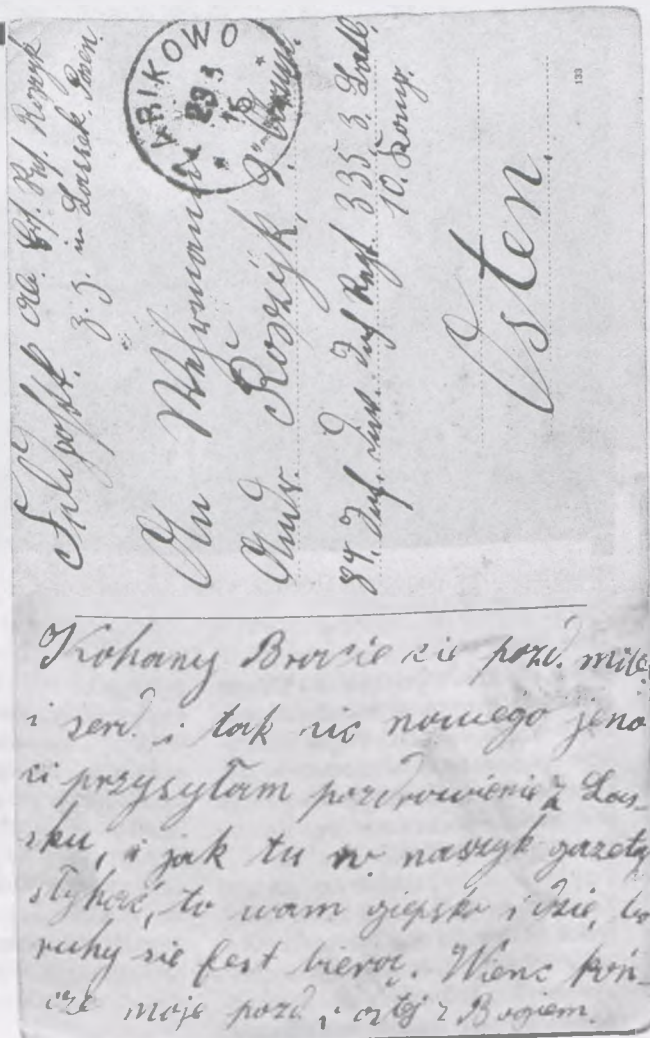 Feldpost. Abs. Gef. Roszyk
z. Z. in Lassek Posen
ŻABIKOWO
29 3
16
An Wehrmann
Roszyk,
84. Inf. Div. Inf Regt 335 3. Batl.
10. Komp.
Osten.
133
Kohany Bracie cie pozd. mile
i serd. i tak nic nowego jeno
ci przysyłam pozdrowienie z Las-
sku, i jak tu w naszyk gazety
słyhać, to wam giepsko idzie, bo
ruhy sie fest bierą. Wienc koń-
cze moje pozd. i ostej z Bogiem.